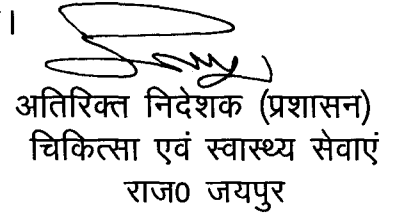 ।
अतिरिक्त निदेशक (प्रशासन)
चिकित्सा एवं स्वास्थ्य सेवाएं
राज0 जयपुर